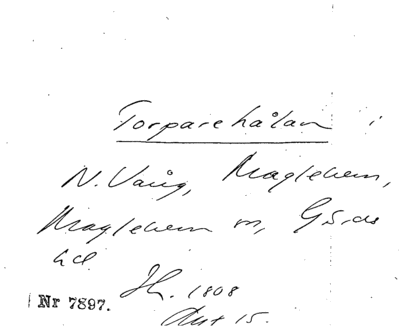 Torparehålan i
N. Vång, Maglehem,
Maglehem sn, Gärds
hd.
Nr 7897. 1808
Akt 15.